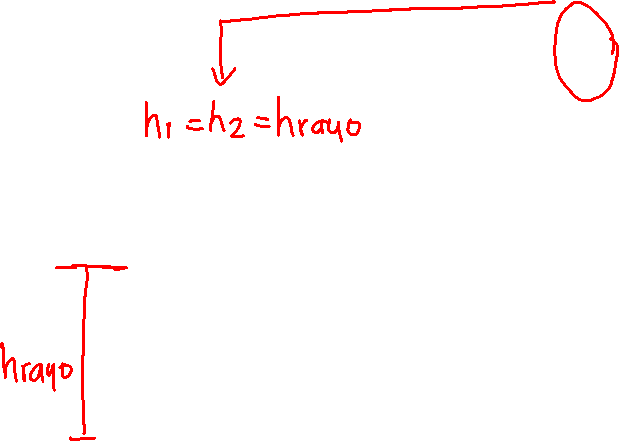 h1 = h2 = hrayo
hrayo